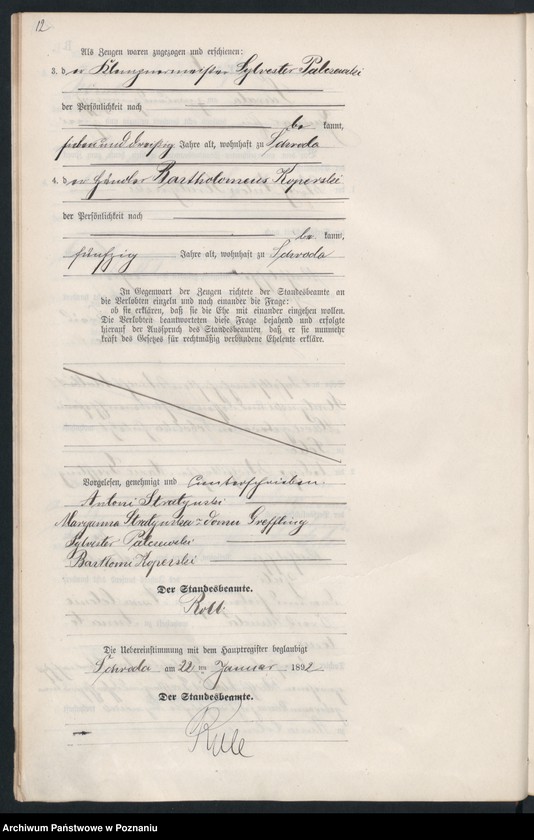 12
Als Zeugen waren zugezogen und erschienen:
3. der Klempnermeister Sylvester Palczewski
der Persönlichkeit nach
be kannt,
sieben und dreißig Jahre alt, wohnhaft zu Schroda
4. der Händler Bartholomeus Koperski
der Persönlichkeit nach
be kannt,
fünfzig Jahre alt, wohnhaft zu Schroda
In Gegenwart der Zeugen richtete der Standesbeamte an
die Verlobten einzeln und nach einander die Frage:
ob sie erklären, daß sie die Ehe mit einander eingehen wollen.
Die Verlobten beantworteten diese Frage bejahend und erfolgte
hierauf der Ausspruch des Standesbeamten, daß er sie nunmehr
kraft des Gesetzes für rechtmäßig verbundene Eheleute erkläre.
Vorgelesen, genehmigt und unterschrieben.
Antoni Stratyński
Maryanna Stratyńska z domu Greffling
Sylvester Palczewski
Bartłomi Koperski
Der Standesbeamte.
Die Uebereinstimmung mit dem Hauptregister beglaubigt
Schroda am 22 ten Januar 1892
Der Standesbeamte.
Archiwum Państwowe w Poznaniu